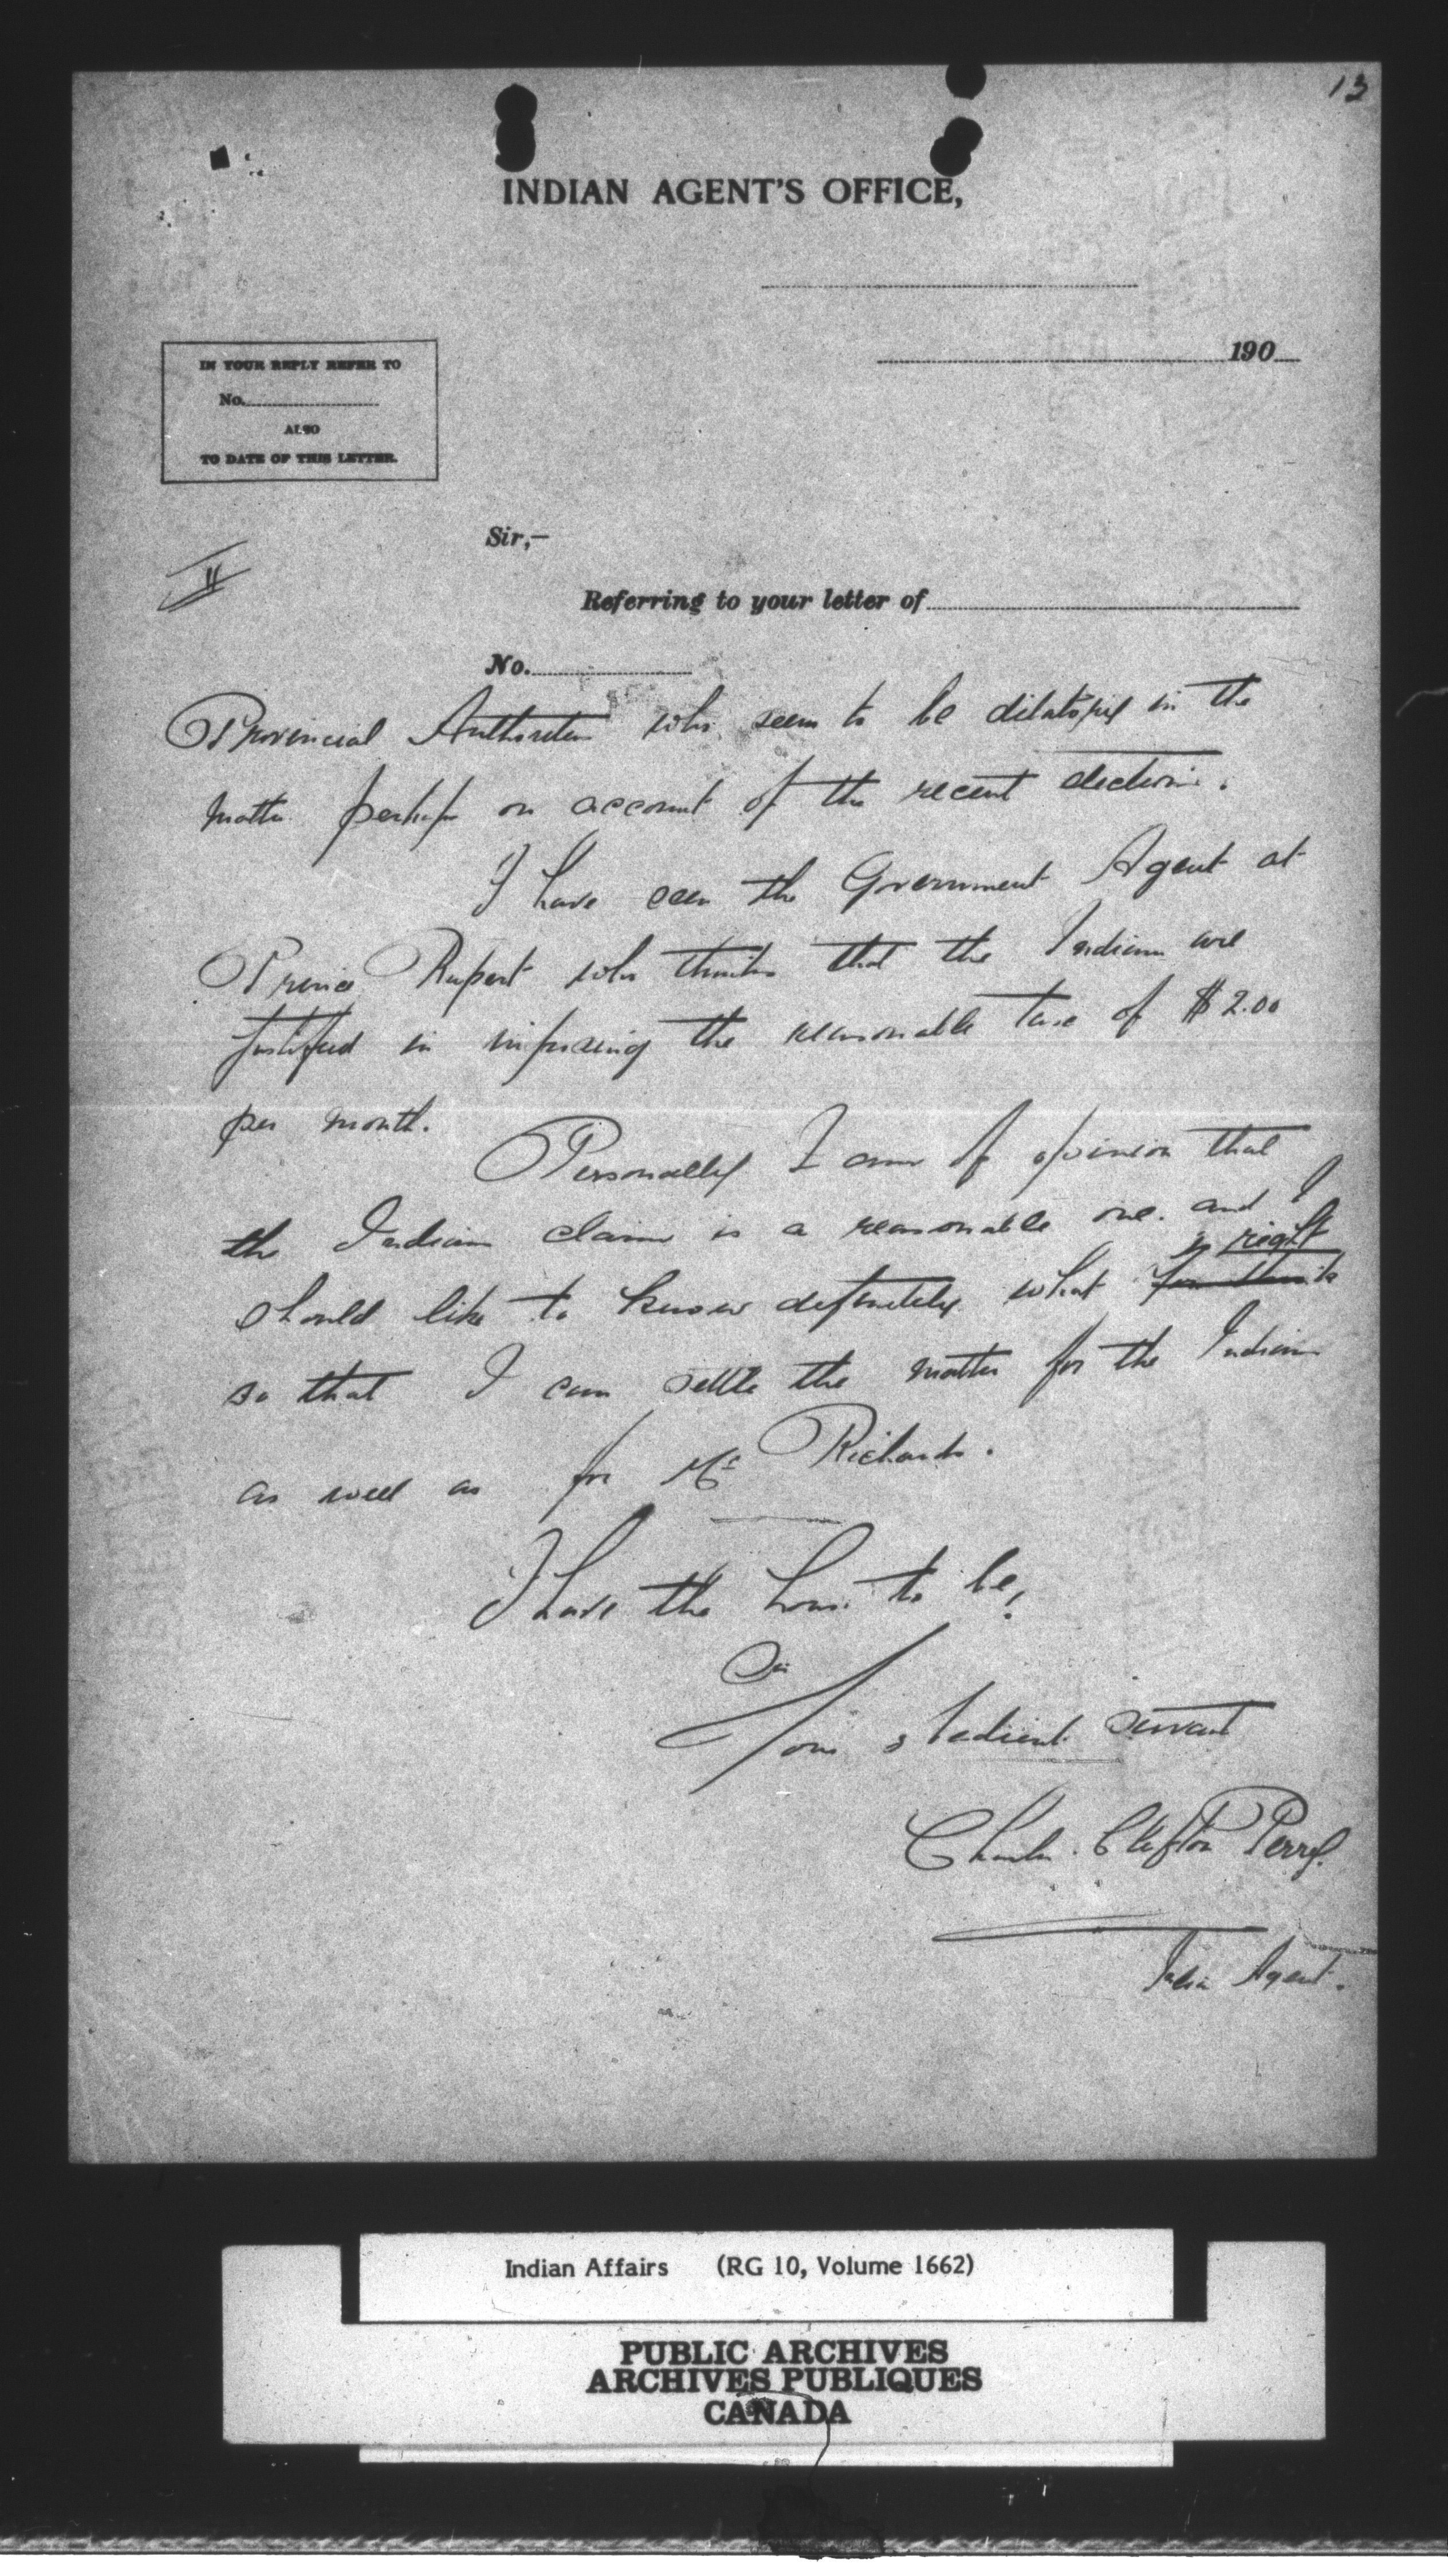 13
INDIAN AGENT'S OFFICE,
190
IN YOUR REPLY REFER TO
No.
ALSO
TO DATE OF THIS LETTER.
Sir,—
II
Referring to your letter of
No.
Provincial Authorities who seem to be dilatory in the
matter perhaps on account of the recent elections.
I have seen the Government Agent at
Prince Rupert who thinks that the Indians are
justified in imposing the reasonable tax of $2.00
per month.
Personally I am of opinion that
the Indians claim is a reasonable one. and I
is right
should like to know definitely what you think
so that I can settle the matter for the Indians
as well as for Mr Richards.
I have the honor to be,
Sir
Your obedient servant
Charles Clifton Perry.
Indian Agent.
Indian Affairs (RG 10, Volume 1662)
PUBLIC ARCHIVES
ARCHIVES PUBLIQUES
CANADA